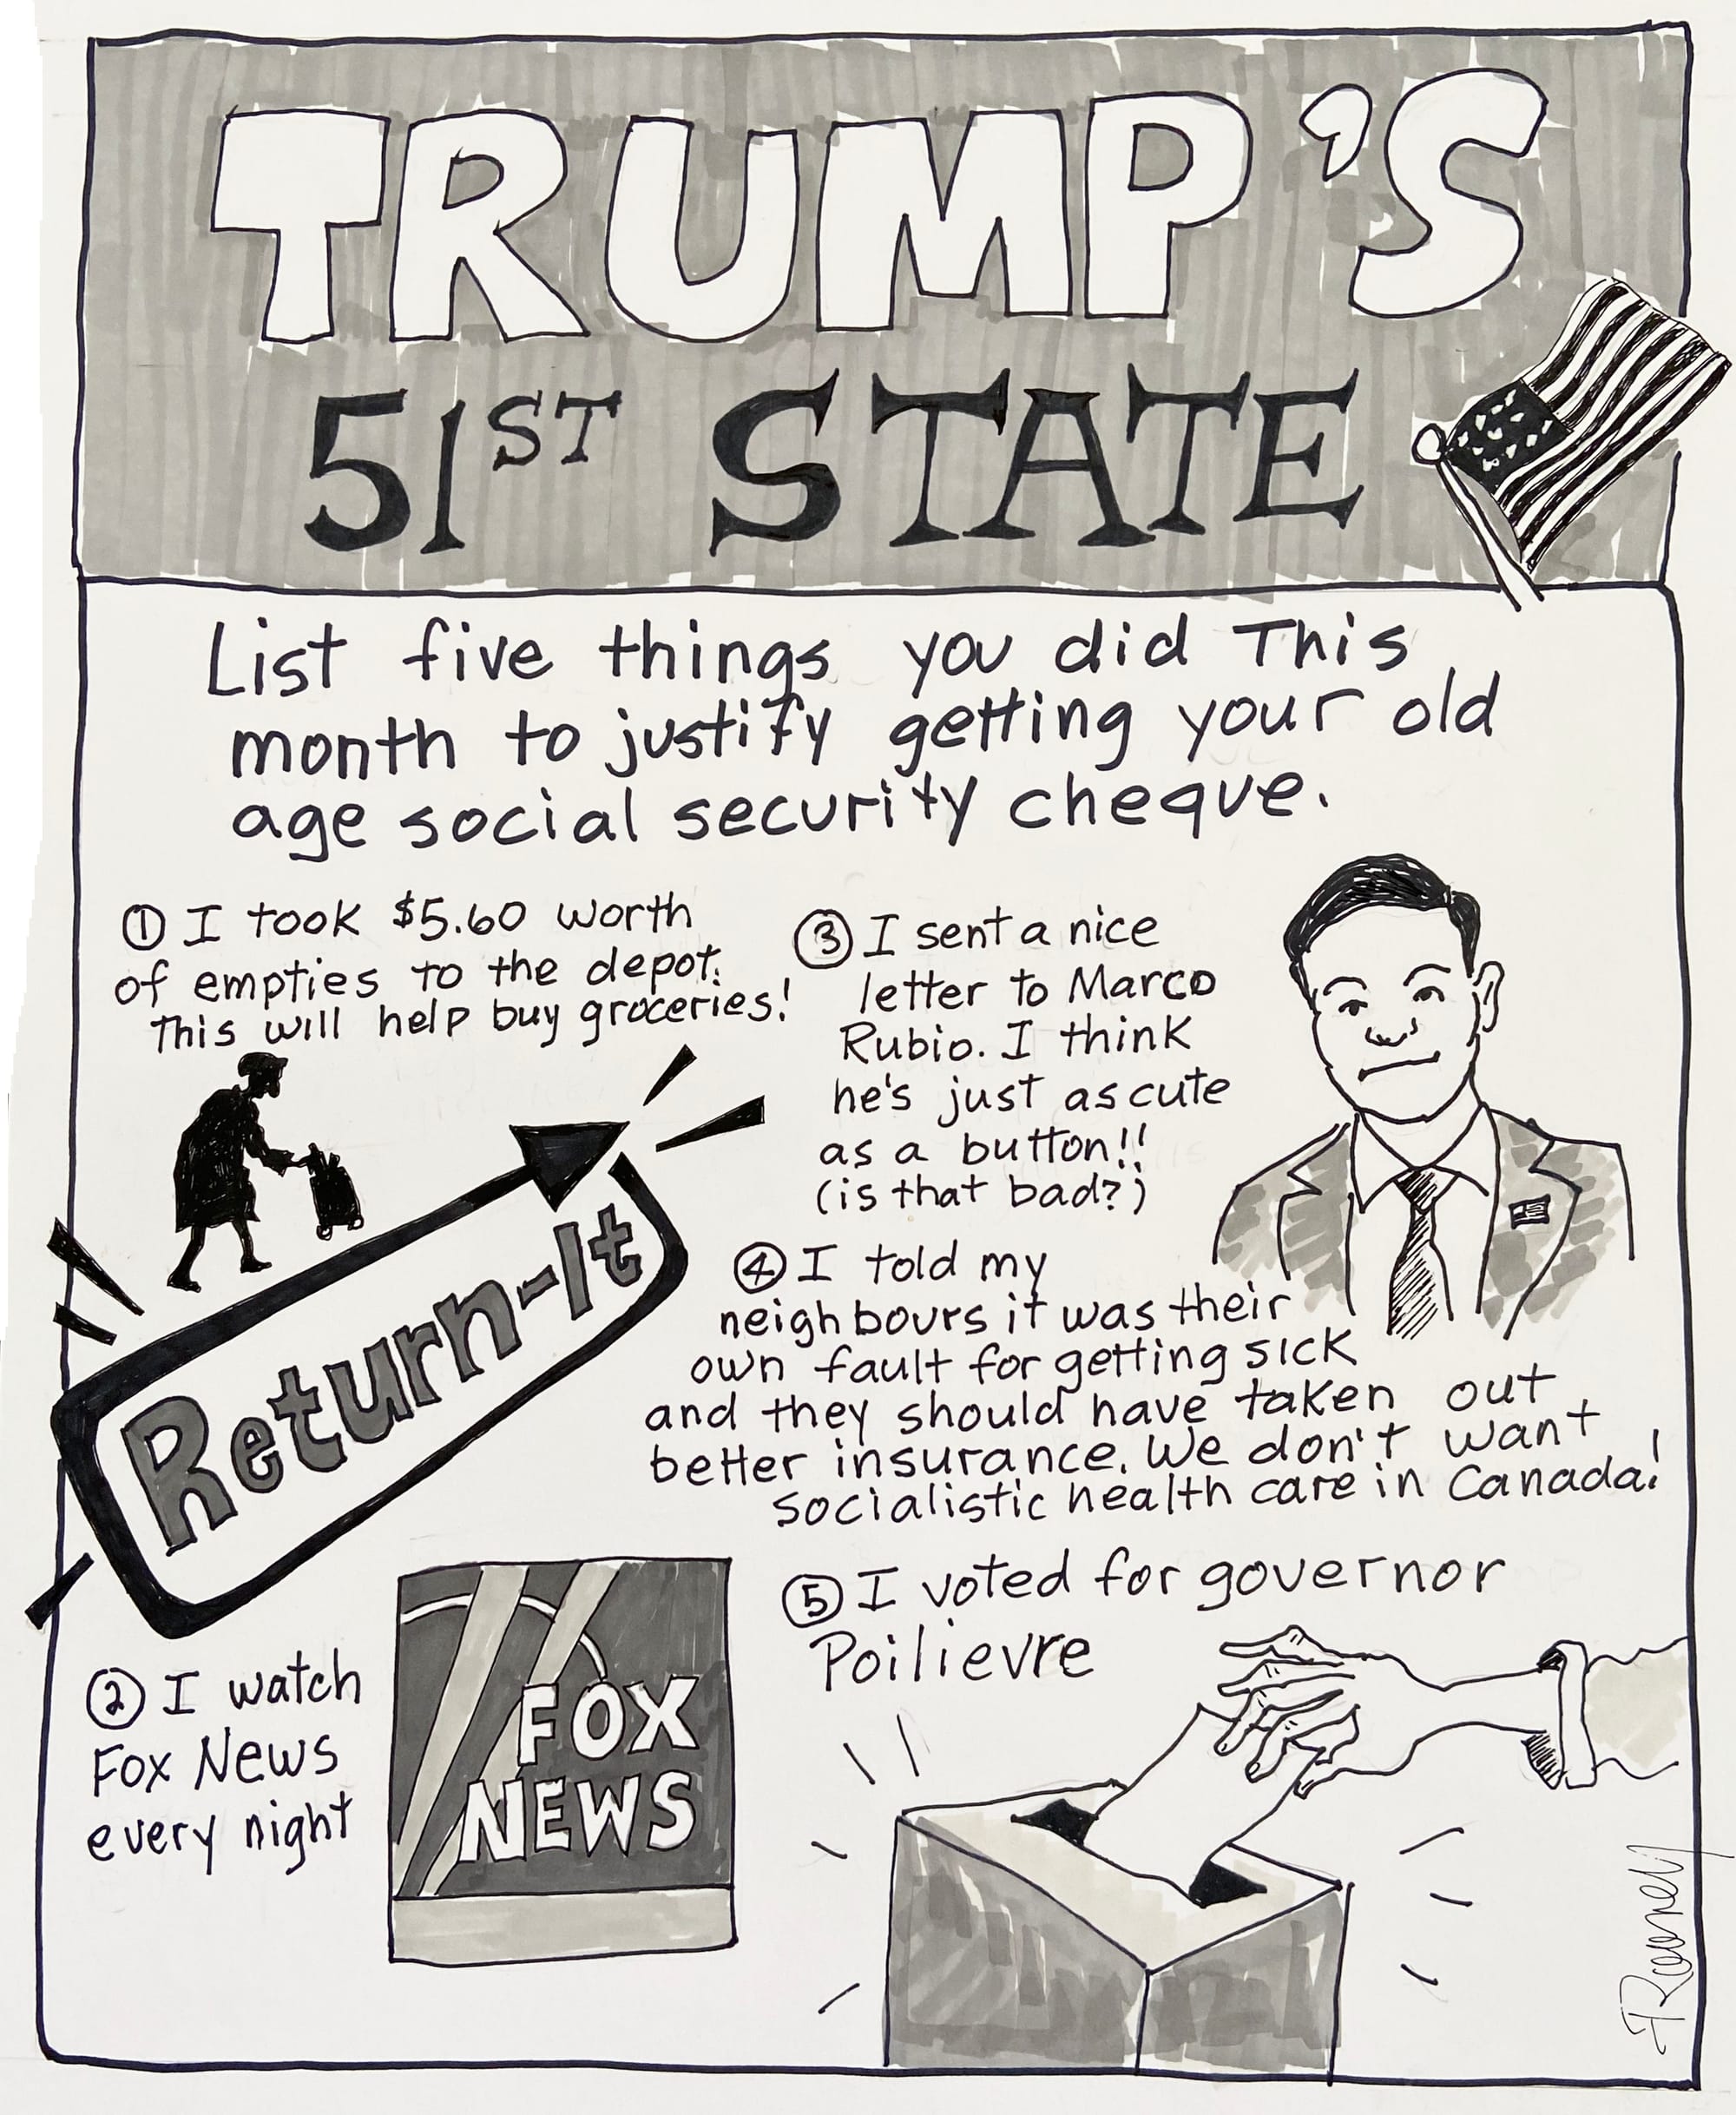 TRUMP'S
51ST STATE
List five things you did This
month to justify getting your old
age social security cheque.
① I took $5.60 worth
of empties to the depot.
This will help buy groceries!
Return-It
② I watch
Fox News
every night
FOX
NEWS
③ I sent a nice
letter to Marco
Rubio. I think
he's just as cute
as a button!!
(is that bad?)
④ I told my
neighbours it was their
own fault for getting sick
and they should have taken out
better insurance. We don't want
socialistic health care in Canada!
⑤ I voted for governor
Poilievre